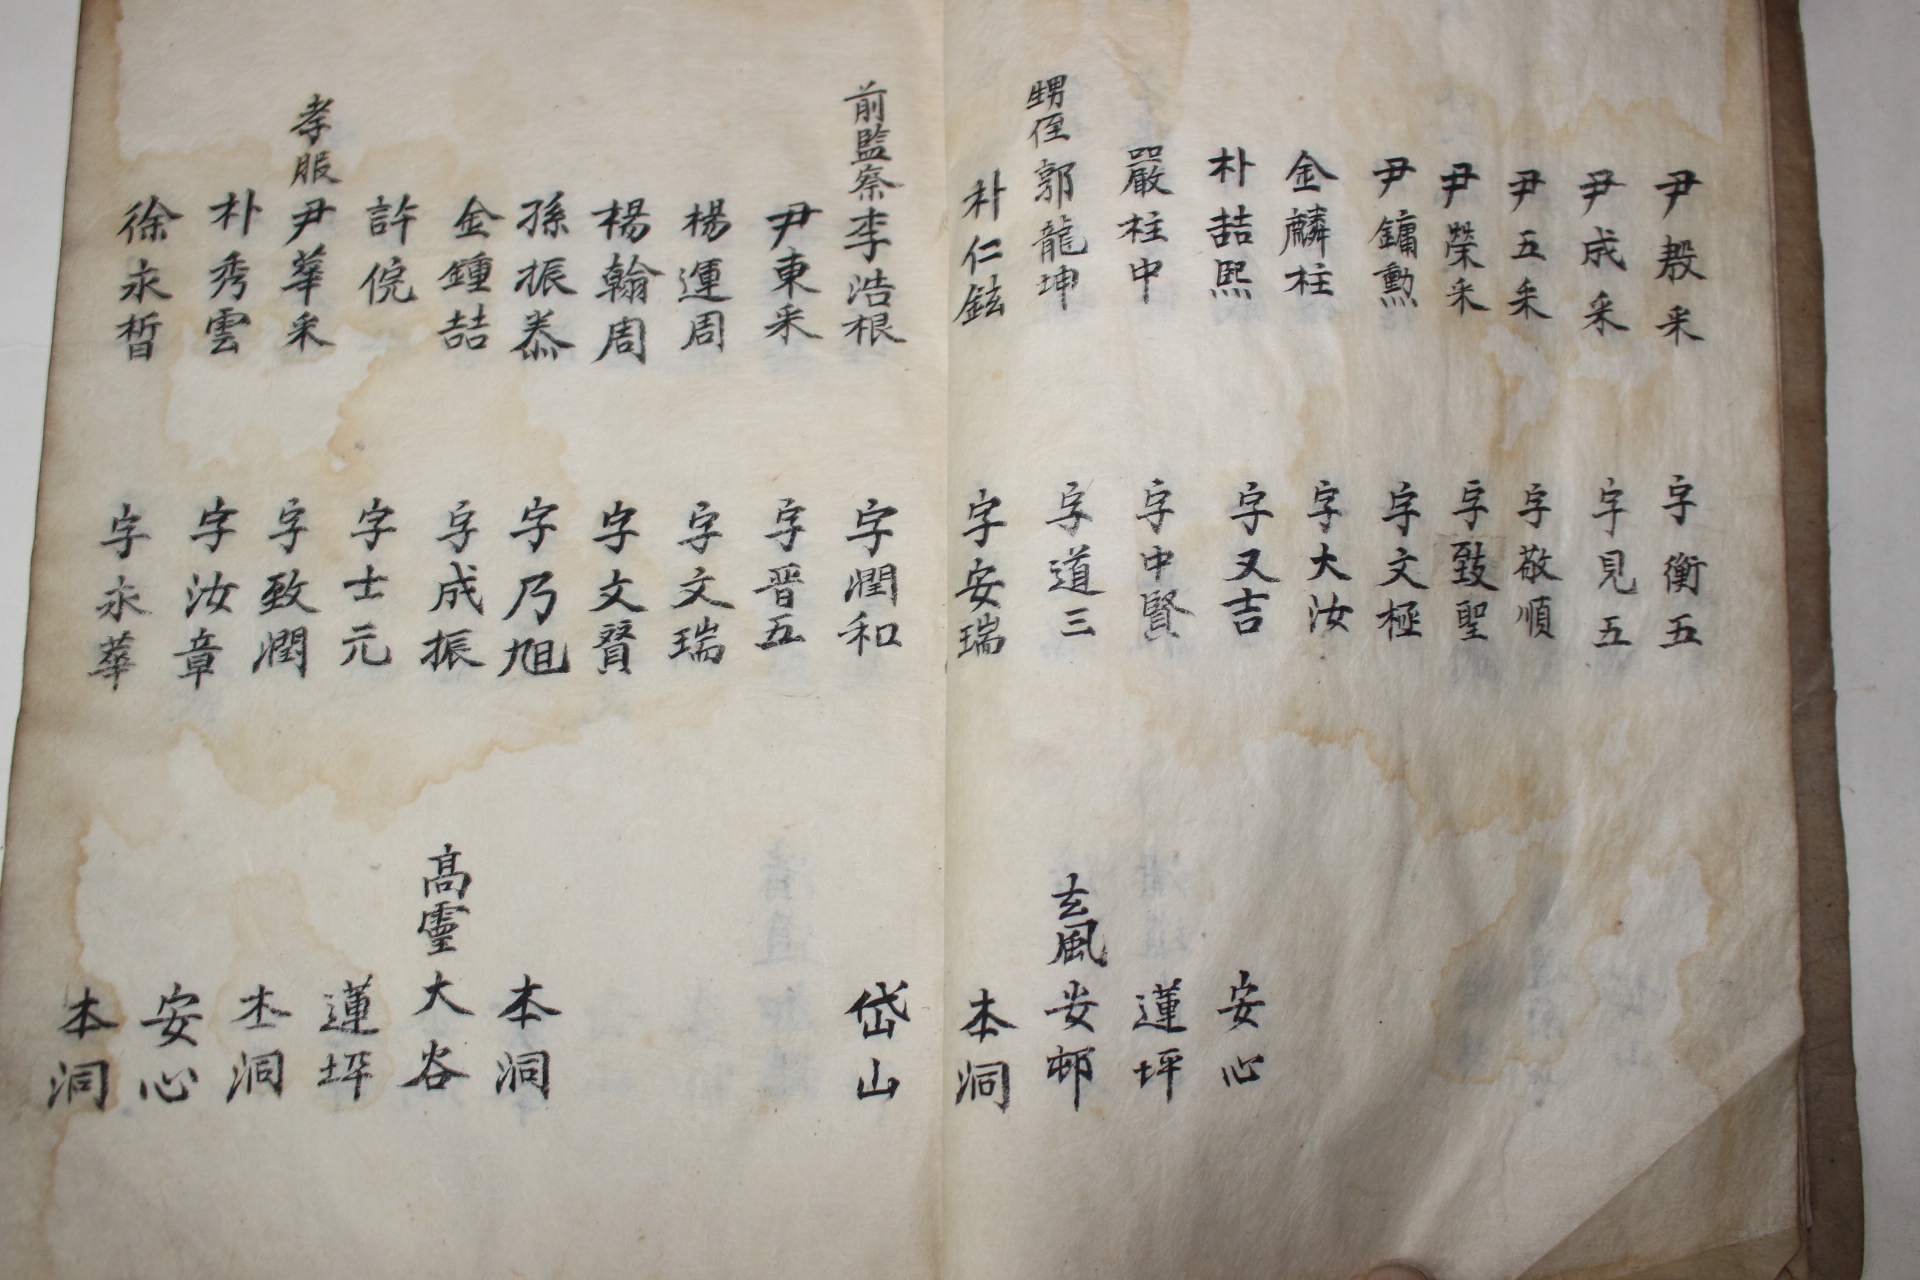 尹殷采 字衡五
尹成采 字見五
尹五采 字敬順
尹榮采 字致聖
尹鏞勲 字文極
金麟柱 字大汝
朴喆熙 字又吉 安心
嚴柱中 字中賢 蓮坪
甥侄 郭龍坤 字道三 玄風 安邨
朴仁鉉 字安瑞 本洞
前監察 李浩根 字潤和 岱山
尹東采 字晋五
楊運周 字文瑞
楊翰周 字文賢
孫振泰 字乃旭 本洞
金鍾喆 字成振 高靈 大谷
許俒 字士元 蓮坪
孝服 尹華采 字致潤 本洞
朴秀雲 字汝章 安心
徐永晳 字永華 本洞